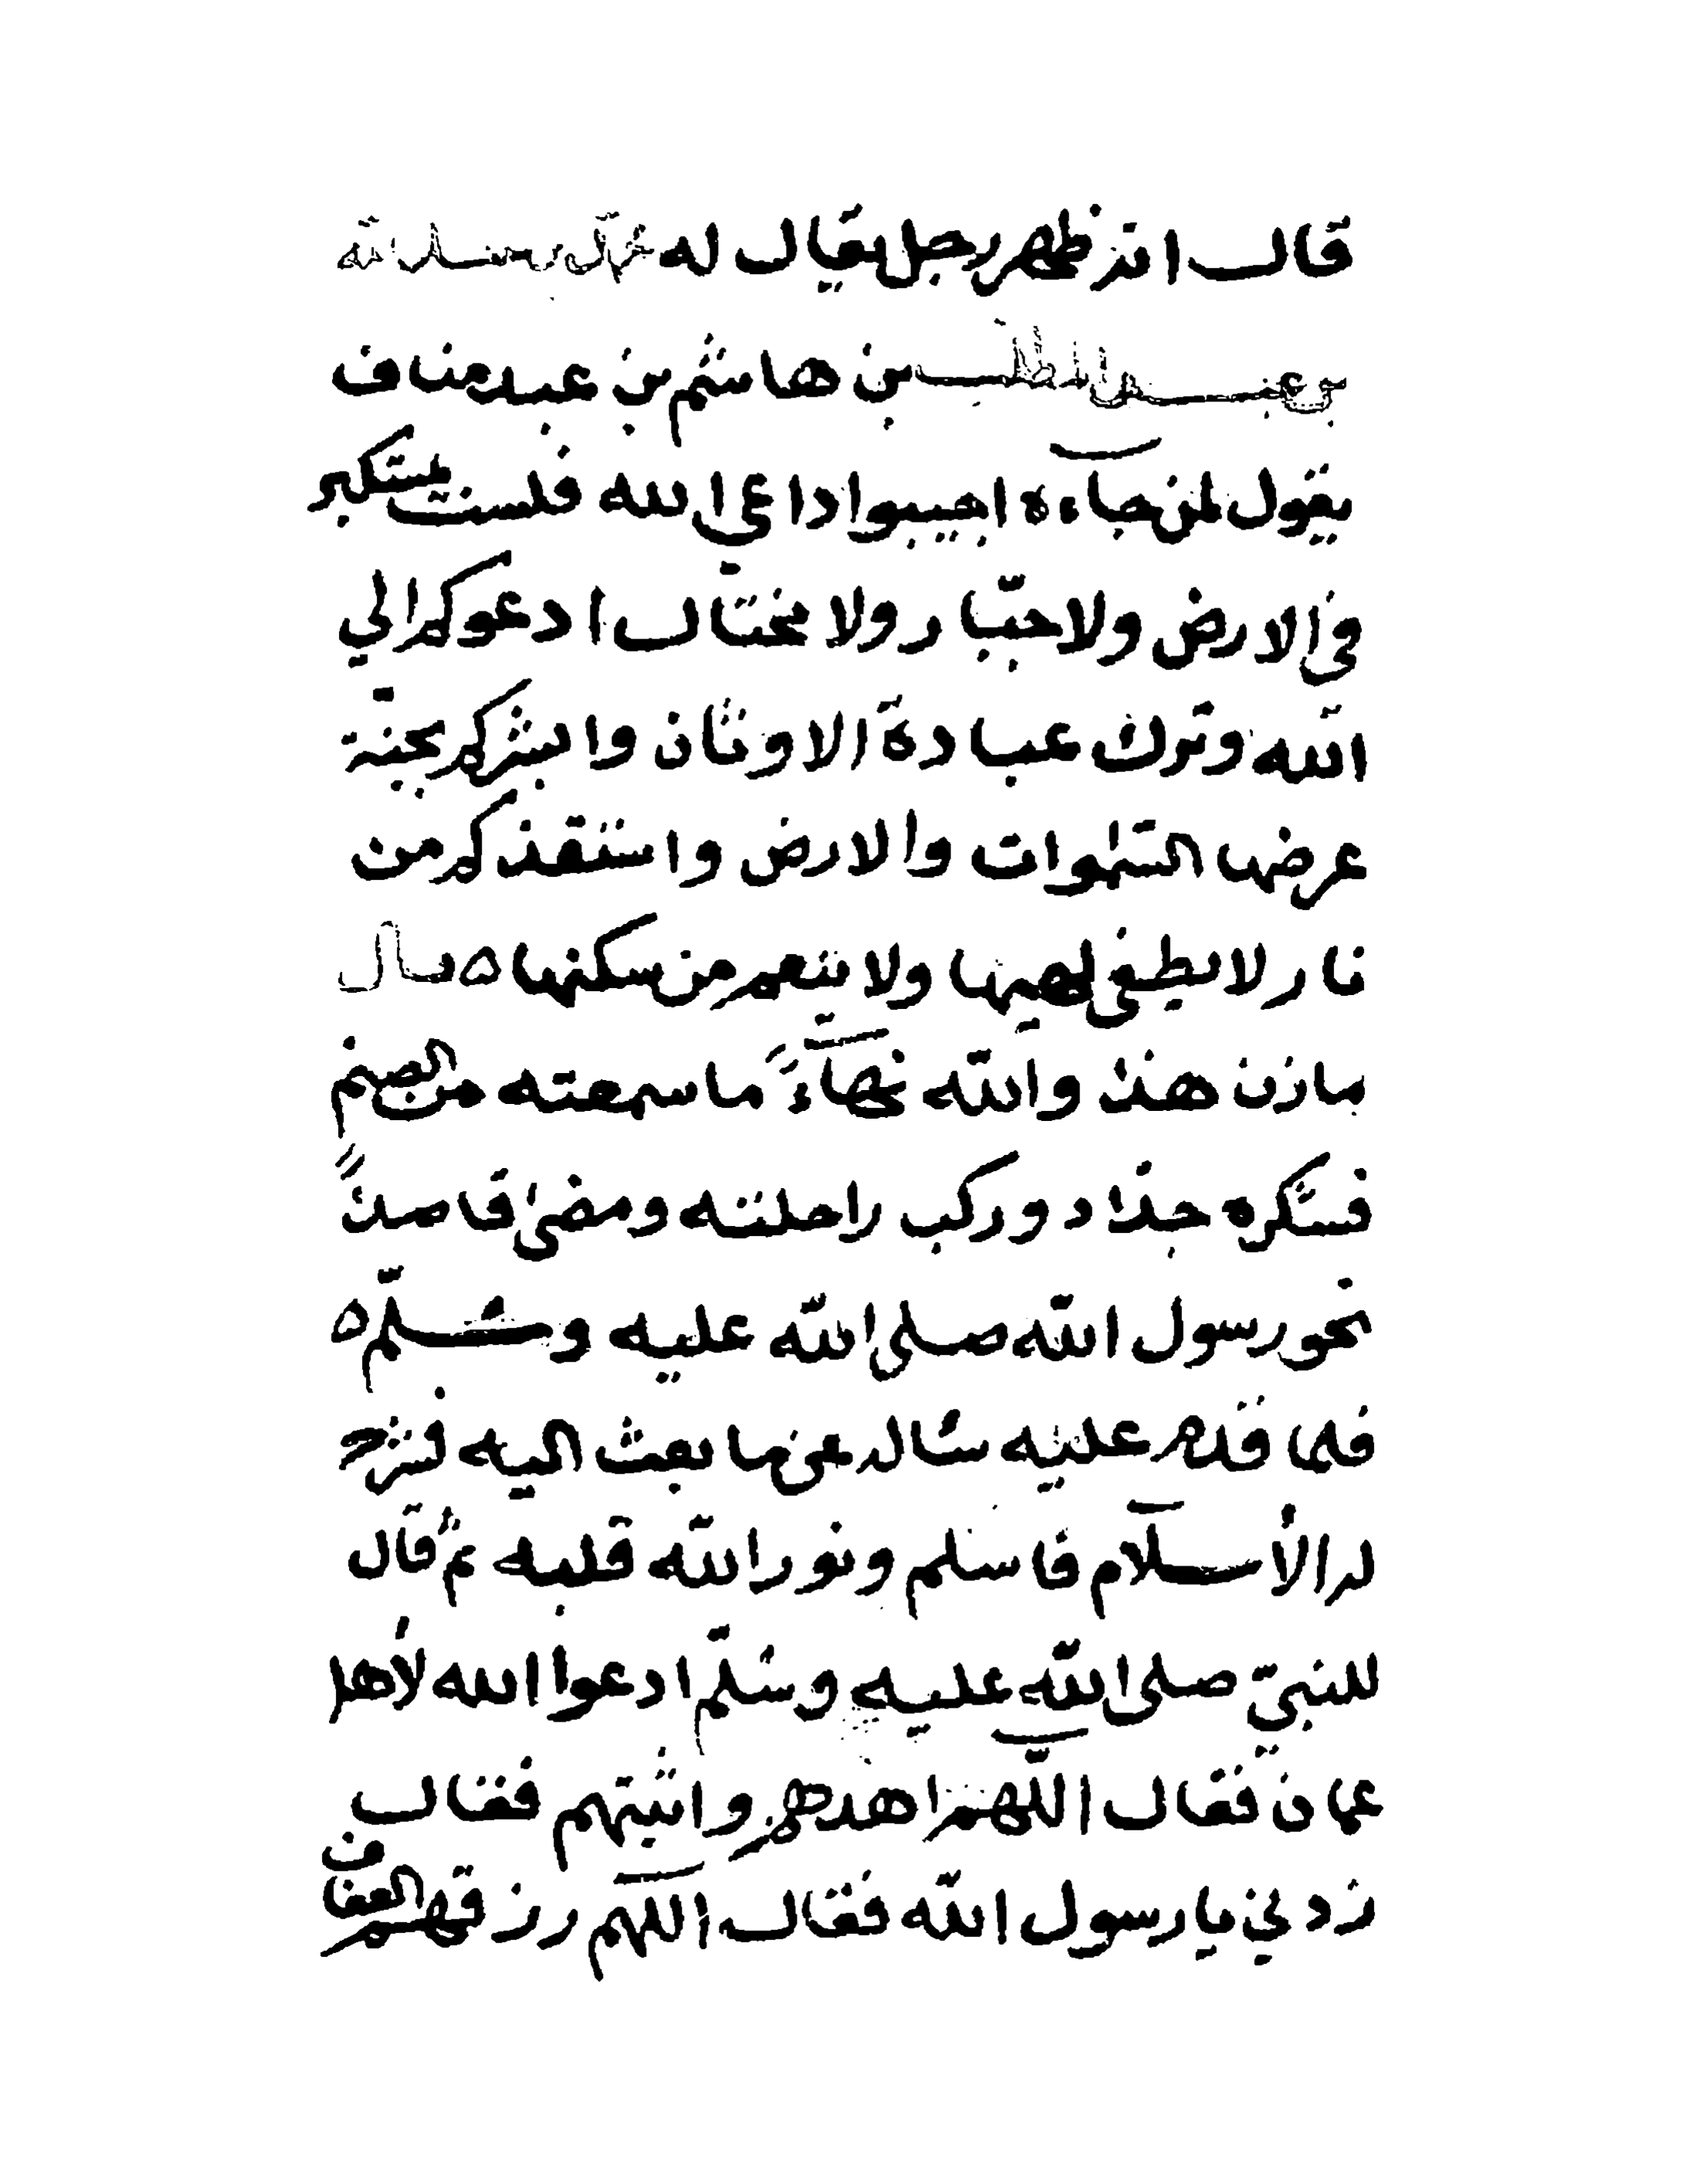 قال انه ظهر رجل يقال له محمد بن عبد الله
بن عبد المطلب بن هاشم بن عبد مناف
يقول لمن جآءه اجيبوا داعي الله فلست بمتكبر
في الارض ولا جبّار ولا مختال ادعوكم الي
الله وترك عبادة الاوثان وابشركم بجنة
عرضها السّموات والارض واستنقذكم من
نار لا يطفى لهيبها ولا ينعم من سكنها ه قال
مازن هذا والله نبأ ما سمعته من الصنم
فتكره جذاذ وركب راحلته ومضى قاصداً
نحو رسول الله صلى الله عليه وسلّم ه
فلما قدم عليه ساله عن ما بعث اليه فشرح
له الأسلام فاسلم ونور الله قلبه ثم قال
للنبيّ صلى الله عليه وسلّم ادعوا الله لأهل
عمان فقال اللّهم اهدهم واثبتهم فقال
زدني يا رسول الله فقال اللّهم ارزقهم العفاف